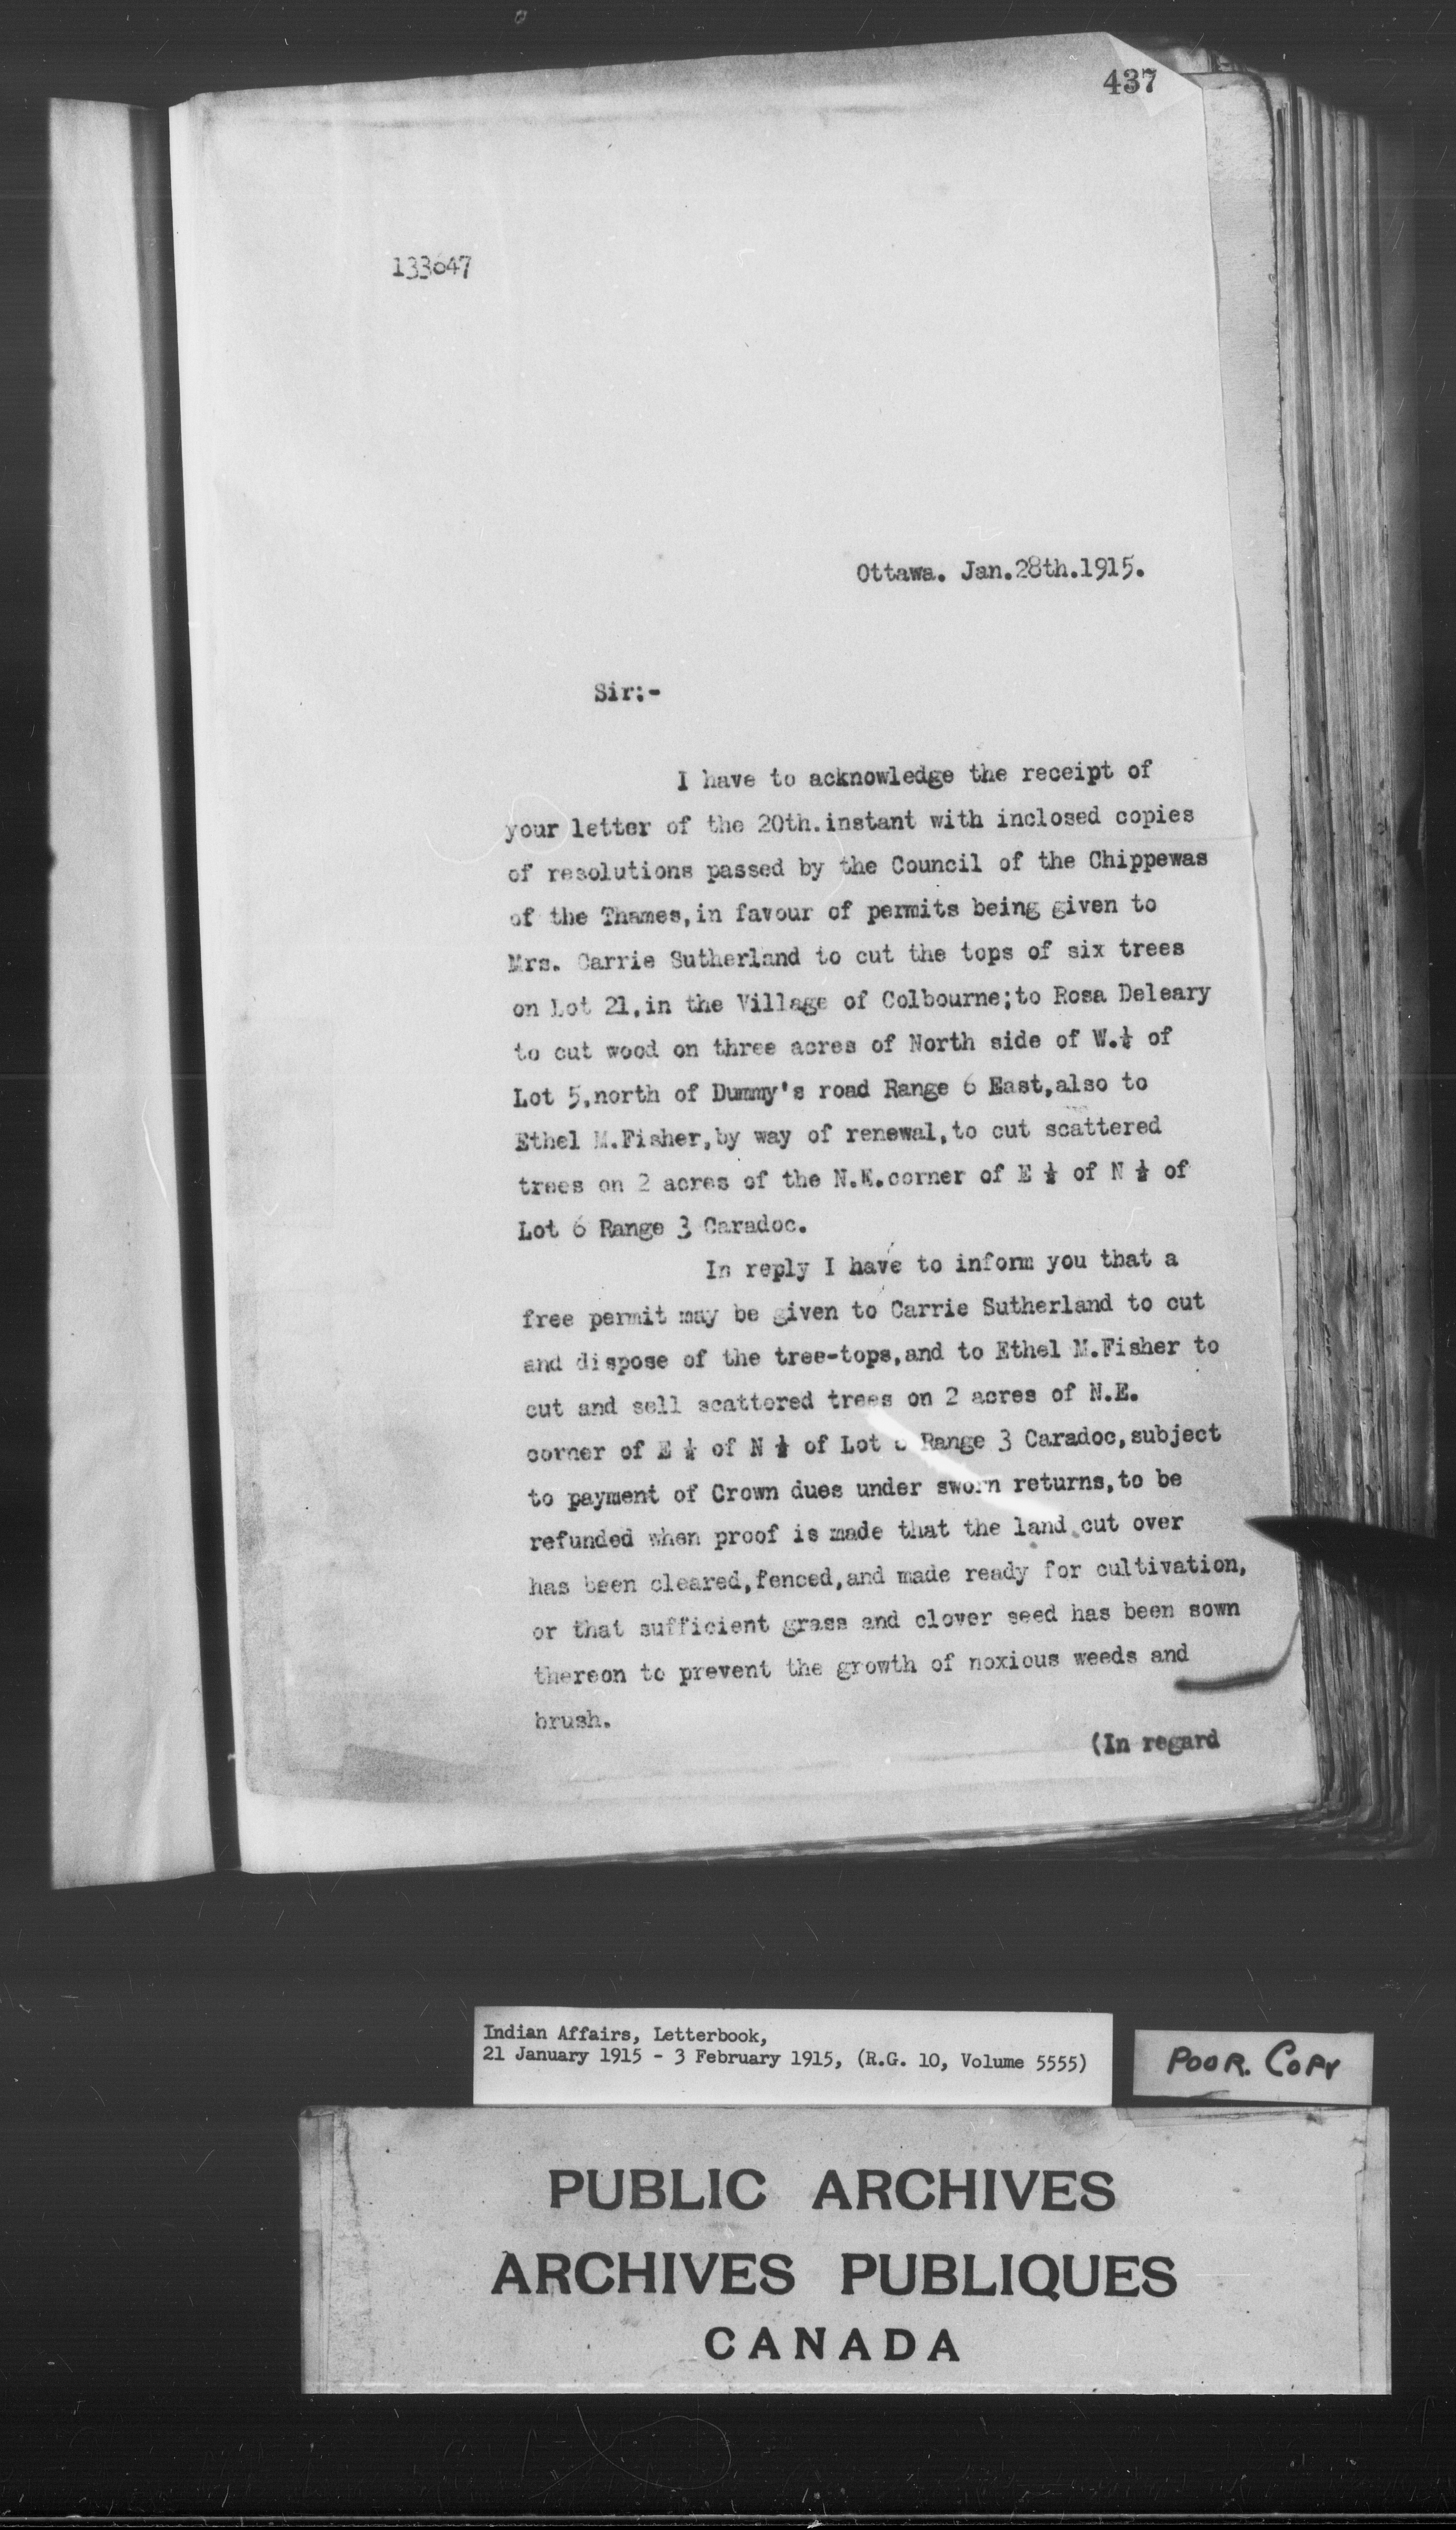 437
133647
Ottawa. Jan.28th.1915.
Sir:-
I have to acknowledge the receipt of
your letter of the 20th.instant with inclosed copies
of resolutions passed by the Council of the Chippewas
of the Thames,in favour of permits being given to
Mrs. Carrie Sutherland to cut the tops of six trees
on Lot 21,in the Village of Colbourne;to Rosa Deleary
to cut wood on three acres of North side of W.½ of
Lot 5,north of Dummy's road Range 6 East,also to
Ethel M.Fisher,by way of renewal,to cut scattered
trees on 2 acres of the N.E.corner of E ½ of N ½ of
Lot 6 Range 3 Caradoc.
In reply I have to inform you that a
free permit may be given to Carrie Sutherland to cut
and dispose of the tree-tops,and to Ethel M.Fisher to
cut and sell scattered trees on 2 acres of N.E.
corner of E ½ of N ½ of Lot 6 Range 3 Caradoc,subject
to payment of Crown dues under sworn returns,to be
refunded when proof is made that the land cut over
has been cleared,fenced,and made ready for cultivation,
or that sufficient grass and clover seed has been sown
thereon to prevent the growth of noxious weeds and
brush.
(In regard
Indian Affairs, Letterbook,
21 January 1915 - 3 February 1915, (R.G. 10, Volume 5555)
POOR. COPY
PUBLIC ARCHIVES
ARCHIVES PUBLIQUES
CANADA